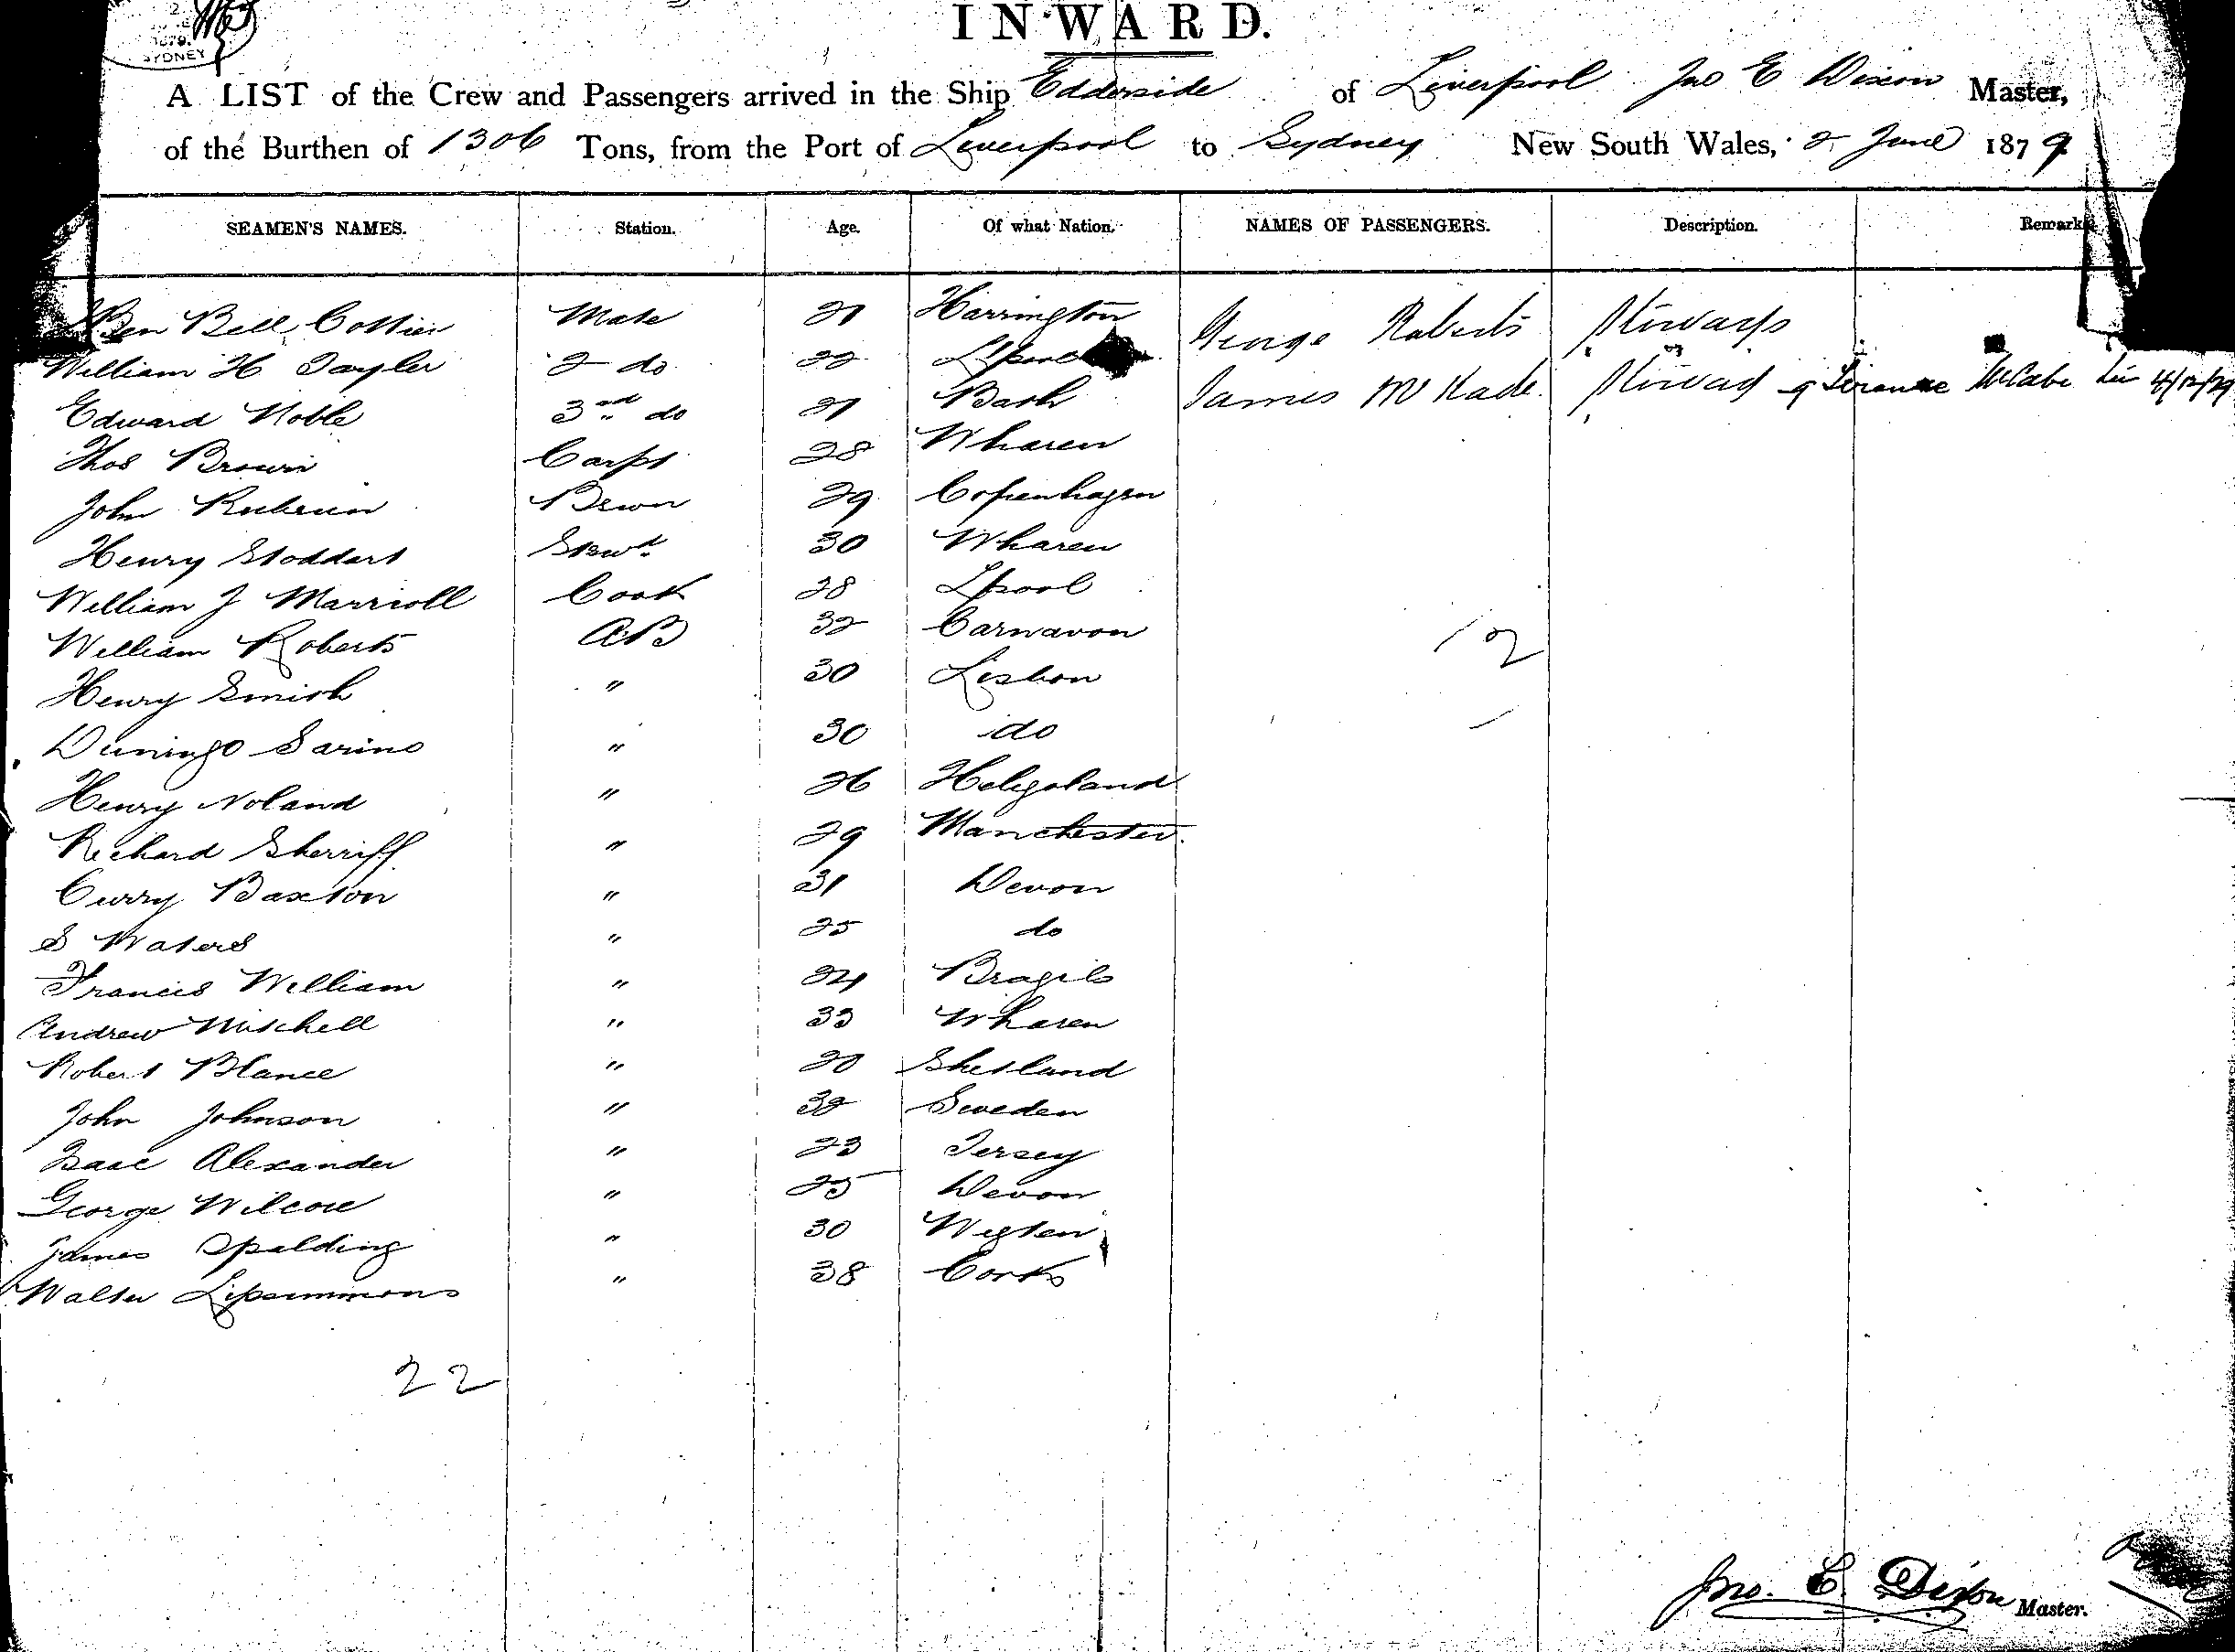 SYDNEY
INWARD.
A LIST of the Crew and Passengers arrived in the Ship Edderside of Liverpool Jno E Dixon Master,
of the Burthen of 1306 Tons, from the Port of Liverpool to Sydney New South Wales, 2 June 1879
SEAMEN'S NAMES. Station. Age. Of what Nation. NAMES OF PASSENGERS. Description. Remarks
Ben Bell Mate 21 Harrington George Roberts Stowaways
William H Tayler 2 do 22 Lpool
Edward Noble 3rd do 21 Bath James Stoway McCabe
Thos Brown Carpt 28 Wharen
John Bswn 29 Copenhagen
Henry Stoddart Stewd 30 Wharen
William J Marriott Cook 28 Lpool
William Roberts AB 32 Carnavon 2
Henry Smith " 30 Lisbon
Duningo Sarino " 30 do
Henry Noland " 26 Heligoland
Richard Sherriff " 29 Manchester
Curry Baxton " 31 Devon
S Waters " 25 do
Francis William " 24 Brazils
Andrew Mitchell " 33 Wharen
Robert Blance " 20 Shetland
John Johnson " 32 Sweden
Isaac Alexander " 23 Jersey
George Wilcox " 25 Devon
James Spalding " 30 Wigton
Walter " 38 Cork
22
Jno. E. Dixon Master.